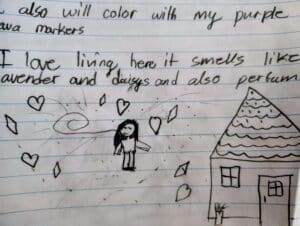 also will color with my purple
markers
I love living here it smells like
avender and daisys and also perfum